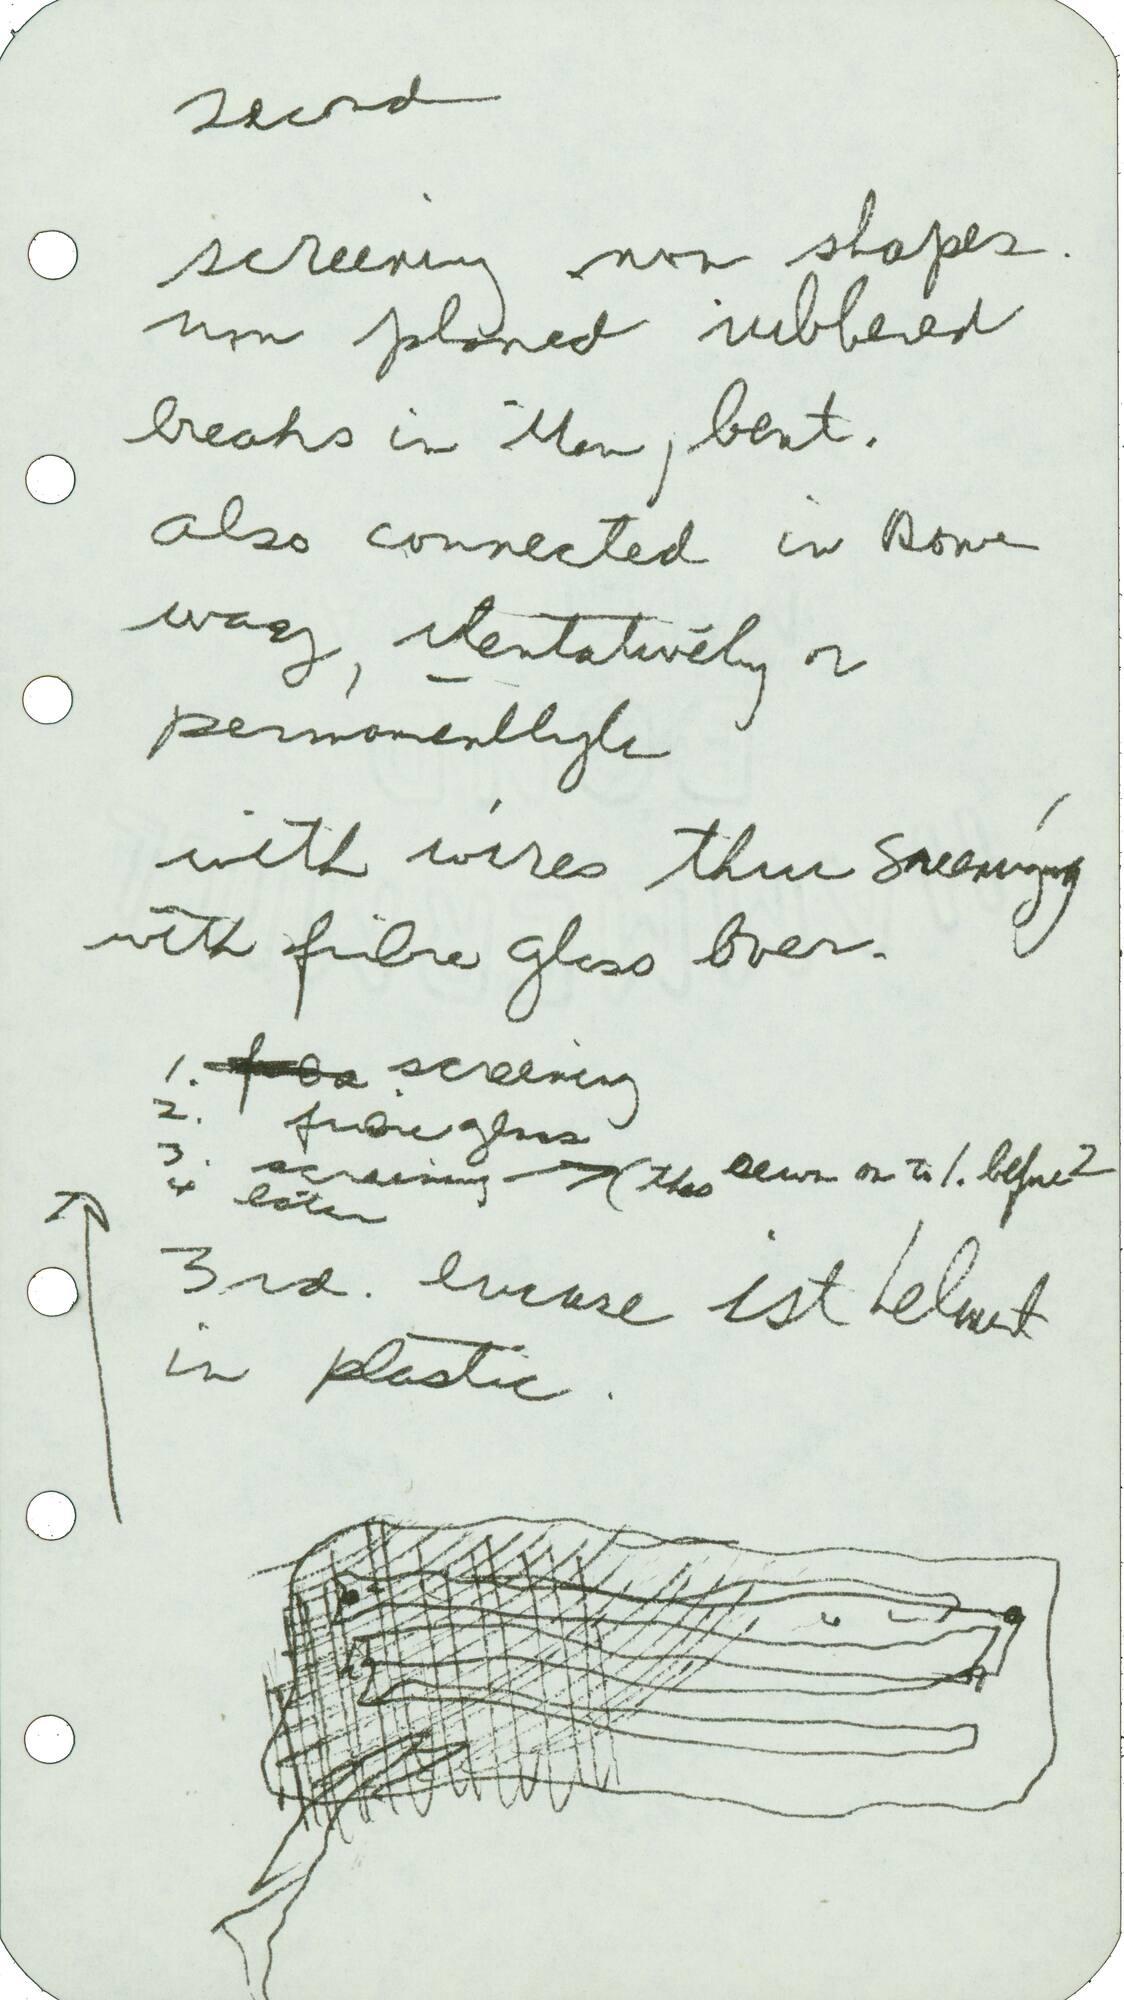 second
screening non shapes.
non planed rubbered
breaks in them, bent.
also connected in some
way, tentatively or
permanently
with wires thru screening
with fibre glass over.
1. screening
2. fibre glass
3. screening → (this sewn on to 1. before 2
4 latex
3rd. encase 1st helmet
in plastic.